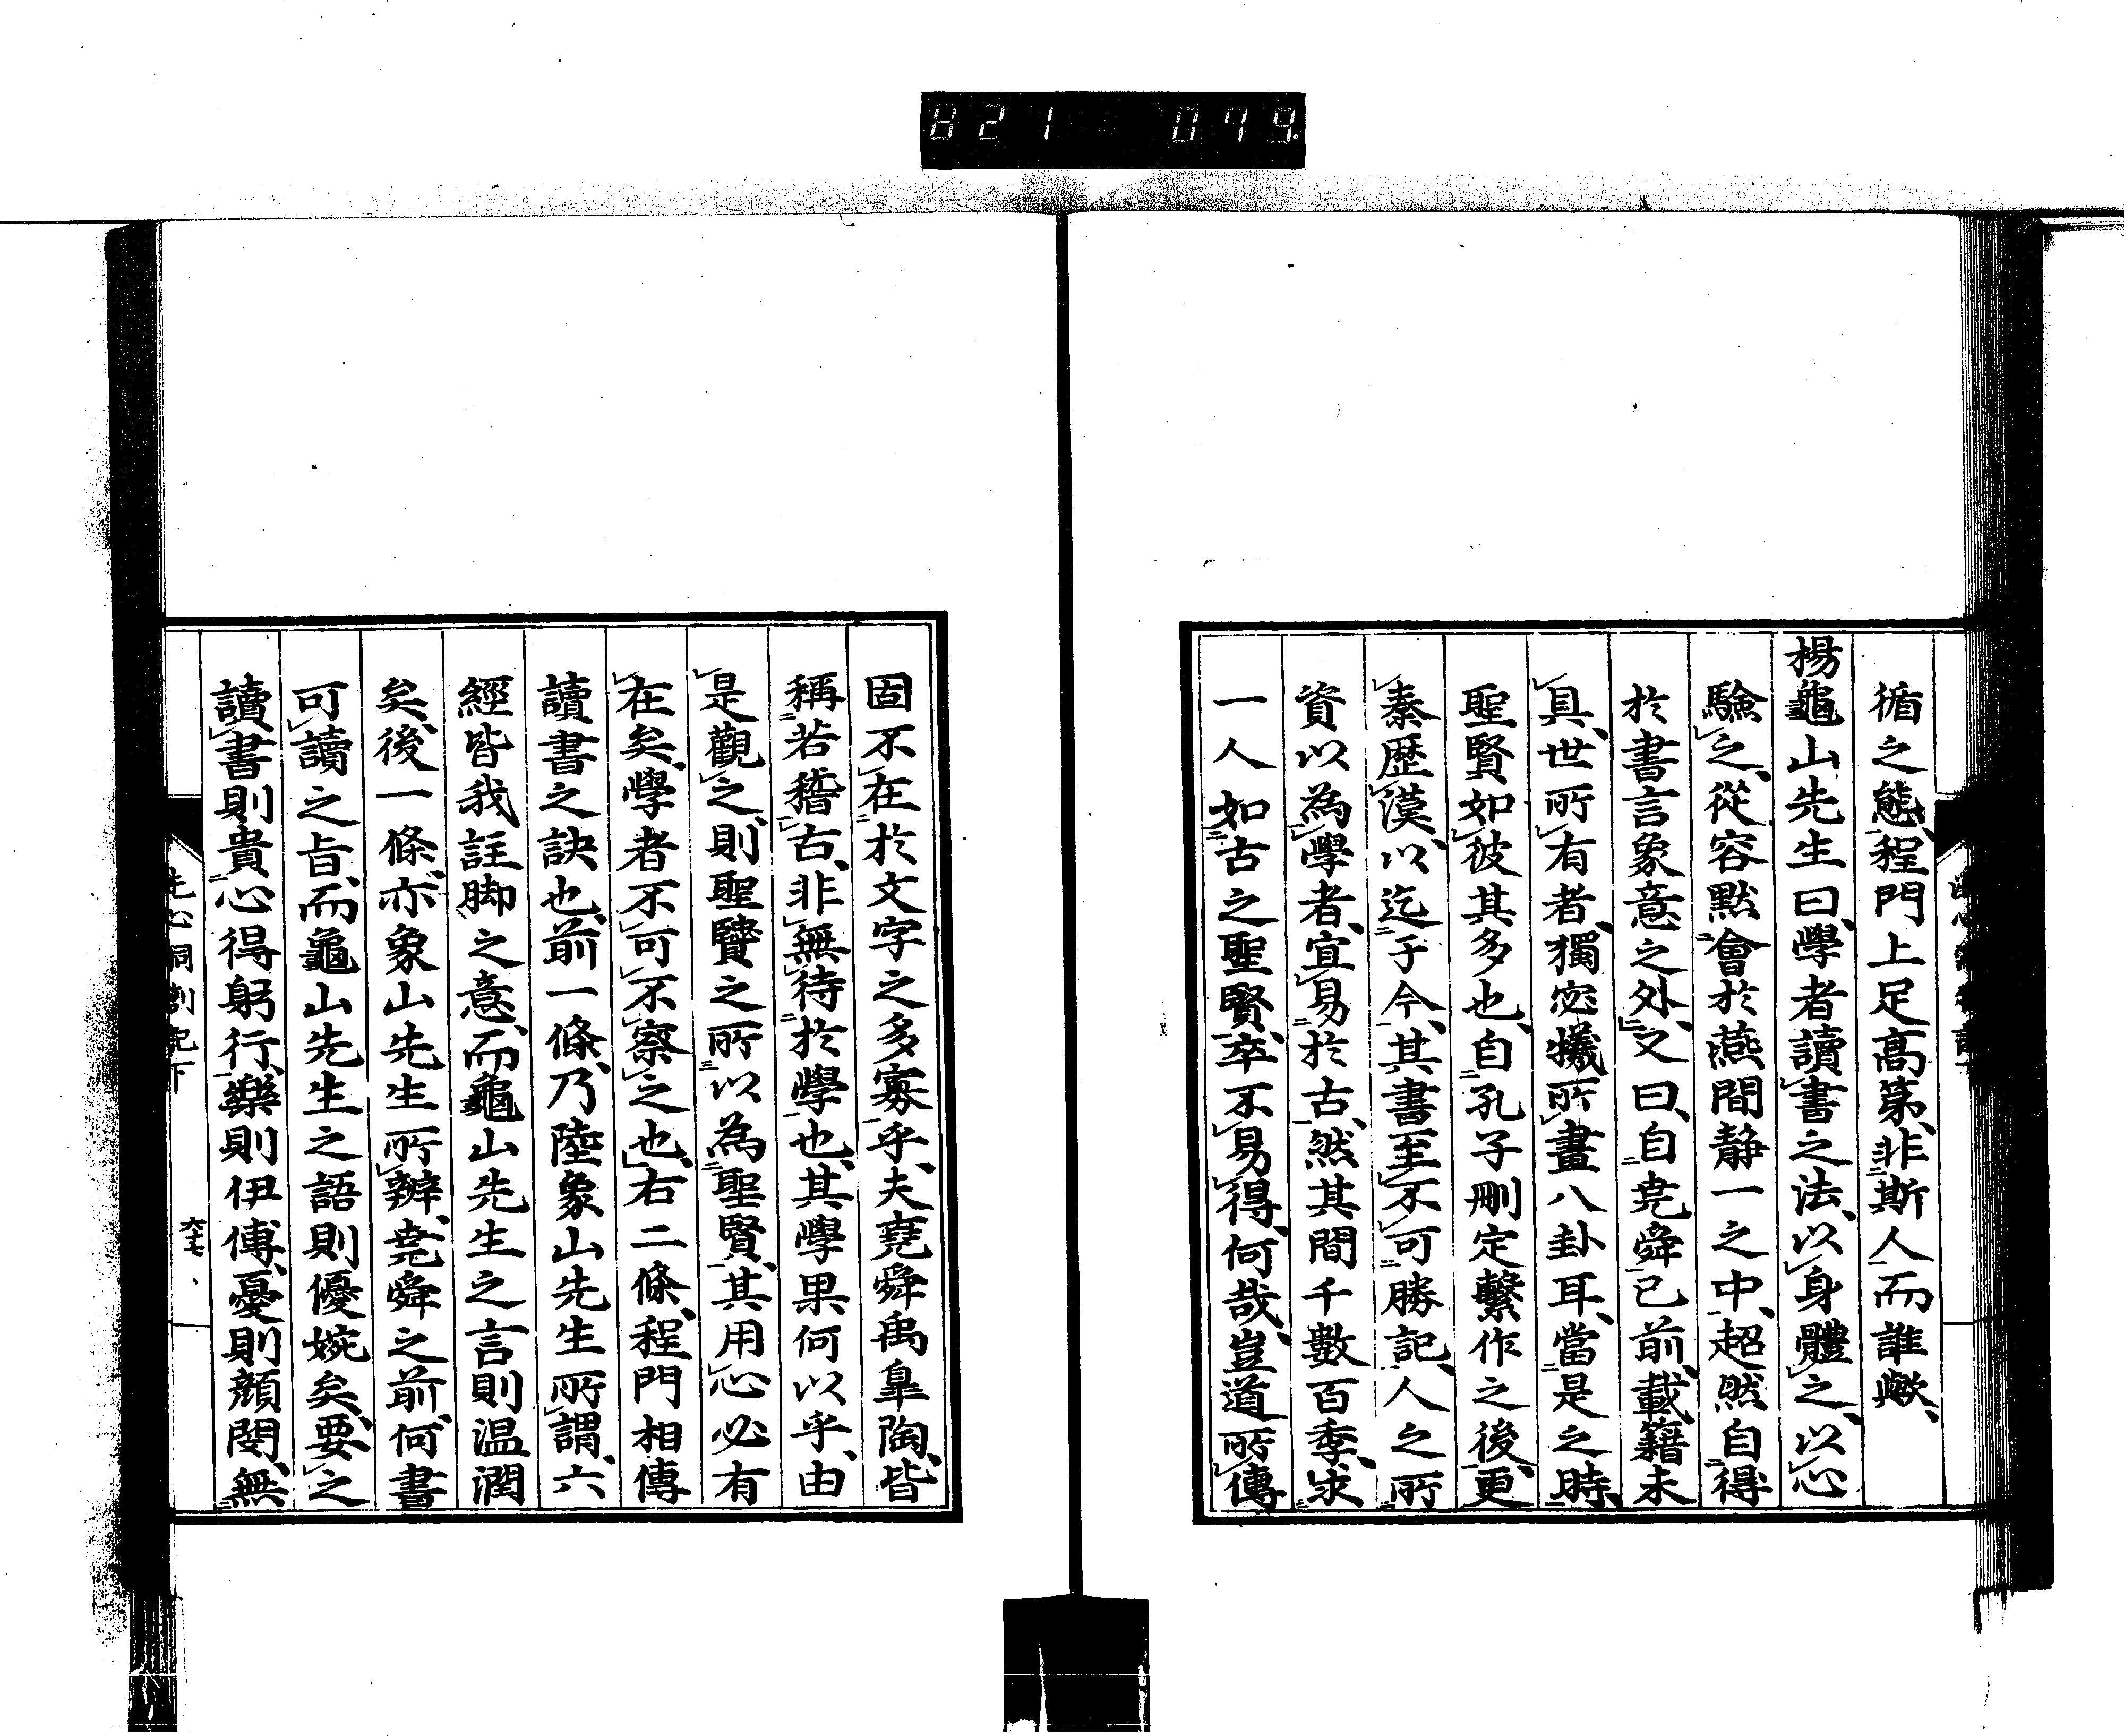 821 079
循之態、程門上足高第、非斯人而誰歟、
楊龜山先生曰、學者讀書之法、以身體之、以心
驗之、從容默會於燕間靜一之中、超然自得
於書言象意之外、又曰、自堯舜已前、載籍未
具、世所有者、獨宓犧所畫八卦耳、當是之時、
聖賢如彼其多也、自孔子刪定繫作之後、更
秦歷漢、以迄于今、其書至不可勝記、人之所
資以為學者、宜易於古、然其間千數百季、求
一人如古之聖賢、卒不易得、何哉、豈道所傳
固不在於文字之多寡乎、夫堯舜禹皐陶、皆
稱若稽古、非無待於學也、其學果何以乎、由
是觀之、則聖賢之所以為聖賢、其用心必有
在矣、學者不可不察之也、右二條、程門相傳
讀書之訣也、前一條、乃陸象山先生所謂、六
經皆我註脚之意、而龜山先生之言則温潤
矣、後一條、亦象山先生所辨、堯舜之前、何書
可讀之旨、而龜山先生之語則優婉矣、要之
讀書則貴心得躬行、樂則伊傅、憂則顔閔、無
洗心洞劄記下
六十七